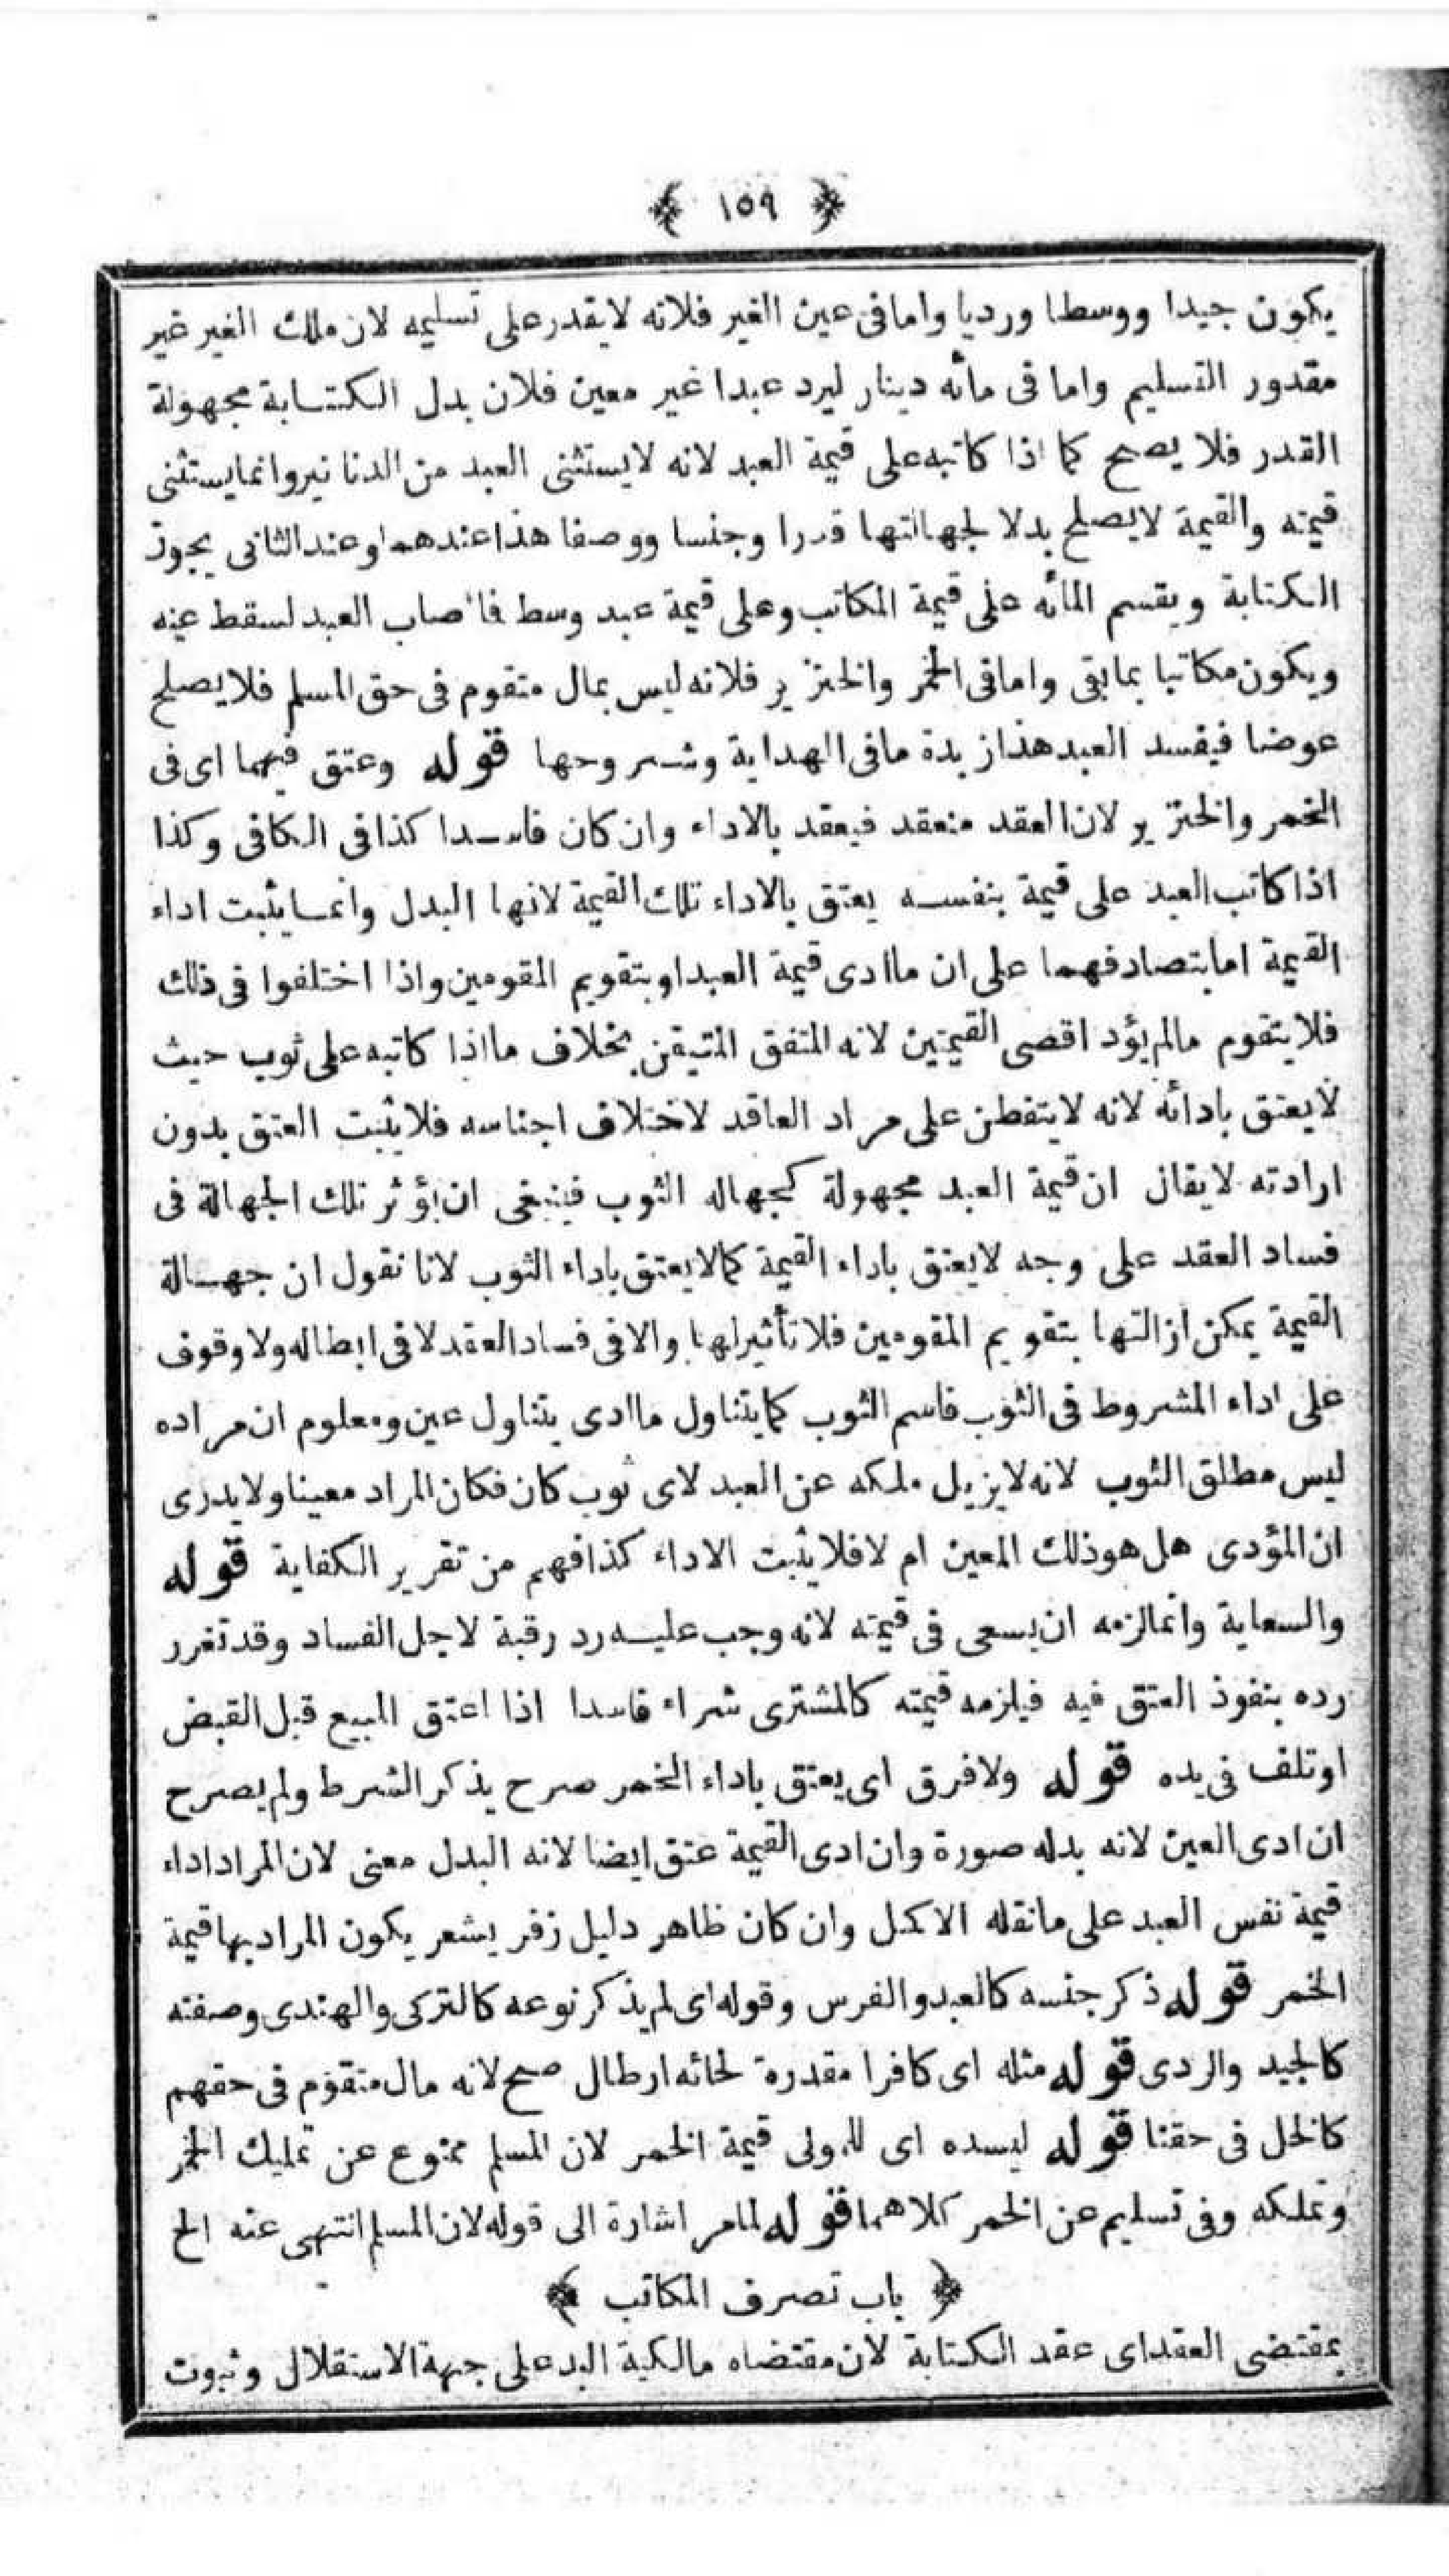 ﴿ ١٥٩ ﴾
يكون جيدا ووسطا ورديا واما فى عين الغير فلانه لايقدر على تسليمه لان ملك الغير غير
مقدور التسليم واما فى مائه دينار ليرد عبدا غير معين فلان بدل الكتابة مجهولة
القدر فلا يصح كما اذا كاتبه على قيمة العبد لانه لايستثنى العبد من الدنانير وانما يستثنى
قيمته والقيمة لايصلح بدلا لجهالتها قدرا وجنسا ووصفا هذا عندهما وعند الثانى يجوز
الكتابة ويقسم المائه على قيمة المكاتب وعلى قيمة عبد وسط فا صاب العبد لسقط عنه
ويكون مكاتبا بما بقى واما فى الخمر والخنزير فلانه ليس بمال متقوم فى حق المسلم فلا يصلح
عوضا فيفسد العبد هذا زبدة مافى الهداية وشروحها قوله وعتق فيهما اى فى
الخمر والخنزير لان العقد منعقد فيعقد بالاداء وان كان فاسدا كذا فى الكافى وكذا
اذا كاتب العبد على قيمة بنفسه يعتق بالاداء تلك القيمة لانها البدل وانما يثبت اداء
القيمة اما بتصادفهما على ان ماادى قيمة العبد او بتقويم المقومين واذا اختلفوا فى ذلك
فلا يتقوم مالم يؤد اقصى القيمتين لانه المتفق المتيقن بخلاف مااذا كاتبه على ثوب حيث
لايعتق بادائه لانه لايتفطن على مراد العاقد لاختلاف اجناسه فلا يثبت العتق بدون
ارادته لايقال ان قيمة العبد مجهولة كجهاله الثوب فينبغى ان يؤثر تلك الجهالة فى
فساد العقد على وجه لايعتق باداء القيمة كما لايعتق باداء الثوب لانا نقول ان جهالة
القيمة يمكن ازالتها بتقويم المقومين فلا تأثير لها والا فى فساد العقد لا فى ابطاله ولا وقوف
على اداء المشروط فى الثوب فاسم الثوب كما يتناول ماادى يتناول عين ومعلوم ان مراده
ليس مطلق الثوب لانه لا يزيل ملكه عن العبد لاى ثوب كان فكان المراد معينا ولا يدرى
ان المؤدى هل هو ذلك المعين ام لا فلا يثبت الاداء كذا فهم من تقرير الكفاية قوله
والسعاية وانما لزمه ان يسعى فى قيمته لانه وجب عليه رد رقبة لاجل الفساد وقد تغرر
رده بنفوذ العتق فيه فيلزمه قيمته كالمشترى شراء فاسدا اذا اعتق المبيع قبل القبض
او تلف فى يده قوله ولا فرق اى يعتق باداء الخمر صرح بذكر الشرط ولم يصرح
ان ادى العين لانه بدله صورة وان ادى القيمة عتق ايضا لانه البدل معنى لان المراد اداء
قيمة نفس العبد على مانقله الاكمل وان كان ظاهر دليل زفر يشعر يكون المراد بها قيمة
الخمر قوله ذكر جنسه كالعبد والفرس وقوله اى لم يذكر نوعه كالتركى والهندى وصفته
كالجيد والردى قوله مثله اى كافرا مقدرة لحائه ارطال صح لانه مال متقوم فى حقهم
كالخل فى حقنا قوله ليسده اى للمولى قيمة الخمر لان المسلم ممنوع عن تمليك الخمر
وتملكه وفى تسليم عن الخمر كلاهما قوله لمامر اشارة الى قوله لان المسلم انتهى عنه الخ
﴿ باب تصرف المكاتب ﴾
بمقتضى العقد اى عقد الكتابة لان مقتضاه مالكية اليد على جهة الاستقلال وثبوت